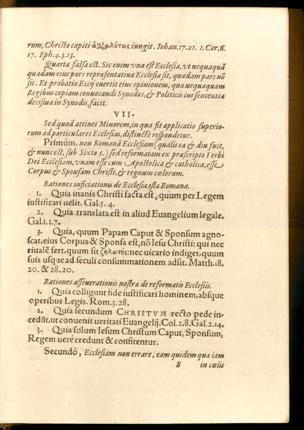 rum, Christo capiti ἀχωρίστως iungit. Iohan. 17. 21. 1. Cor. 6.
17. Eph. 4. 3. 13.
Quarta falsa est. Sic enim vna est Ecclesia, vt nequaquã
quædam eius pars repræsentatiua Ecclesia sit, quædam pars nõ
sit. Et probatio Eccij euertit eius opinionem, qua nequaquam
Regibus copiam conuocandi Synodos, & Politicis ius sententiæ
decisiuæ in Synodis, facit.
VII.
Sed quod attinet Minorem, in qua sit applicatio superio-
rum ad particulares Ecclesias, distinctè respondetur.
Primùm, non Romanã Ecclesiam (qualis ea & diu fuit,
& nunc est, sub Sixto 5.) sed reformatam ex præscripto Verbi
Dei Ecclesiam, vnam esse cum Apostolica & catholica, esse
Corpus & Sponsam Christi, & regnum cælorum.
Rationes inficiationis de Ecclesia ista Romana.
1. Quia inanis Christi facta est, quum per Legem
iustificari uelit. Gal. 5. 4.
2. Quia translata est in aliud Euangelium legale,
Gal. 1. 7.
3. Quia, quum Papam Caput & Sponsum agno-
scat, eius Corpus & Sponsa est, nõ Iesu Christi: qui nec
riualẽ fert, quum sit ζηλωτὴς: nec uicario indiget, quum
suis usque ad seculi consummationem adsit. Matth. 18.
20. & 28. 20.
Rationes asseuerationis nostræ de reformatis Ecclesiis.
1. Quia colligunt fide iustificari hominem, absque
operibus Legis. Rom. 3. 28.
2. Quia secundum CHRISTVM recto pede in-
cedũt, ut conuenit ueritati Euangelij. Col. 2. 8. Gal. 2. 14.
3. Quia solum Iesum Christum Caput, Sponsum,
Regem uerè credunt & confitentur.
Secundò, Ecclesiam non errare, eam quidem quæ iam
B in cælis